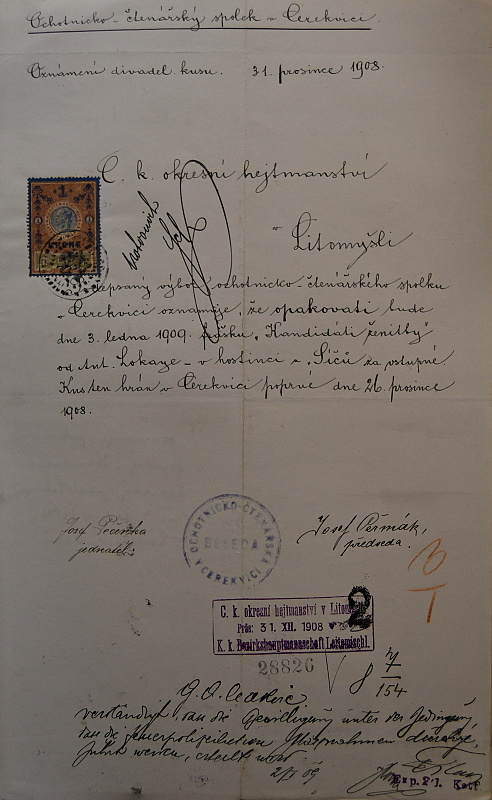 Ochotnicko-čtenářský spolek v Cerekvici.
Oznámení divadel. kusu. 31. prosince 1908.
C. k. okresní hejtmanství
v Litomyšli
1
KRONE
Podepsaný výbor ochotnicko-čtenářského spolku
v Cerekvici oznamuje, že opakovati bude
dne 3. ledna 1909 frašku „Kandidáti ženitby"
od Ant. Lokaye – v hostinci u Síčů za vstupné.
Kus ten hrán v Cerekvici poprvé dne 26. prosince
1908.
Josef
jednatel:
OCHOTNICKO-ČTENÁŘSKÁ
BESEDA
V CEREKVICI
Josef Čeřmák,
předseda.
C. k. okresní hejtmanství v Litomyšli
Präs: 31. XII. 1908
K. k. Bezirkshauptmannschaft Leitomischl.
2
28826
8 7/154
verständigt, dass die Bewilligung unter der Bedingung,
dass die feuerpolizeilichen
werden, erteilt wird
2/I 09